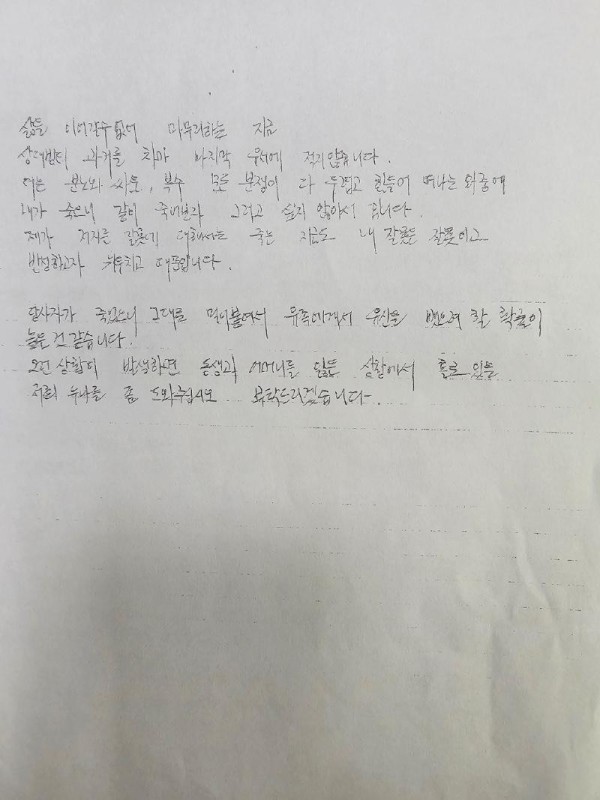 삶을 이어갈수 없어 마무리하는 지금
상대방의 과거를 차마 마지막 유서에 적지않습니다.
저는 분노와 싸움, 복수 모든 분쟁이 다 두렵고 힘들어 떠나는 와중에
내가 죽으니 같이 죽어보자 그러고 싶지 않아서 입니다.
제가 저지른 잘못에 대해서는 죽는 지금도 내 잘못은 잘못이고
반성하고자 뉘우치고 때문입니다.
당사자가 죽었으니 그대로 밀어붙여서 유족에게서 유산을 뺏으려 할 확률이
높은 것 같습니다.
모건 상황이 발생하면 동생과 어머니를 잃은 상황에서 홀로 있을
저희 누나를 좀 도와주십시오 부탁드리겠습니다.